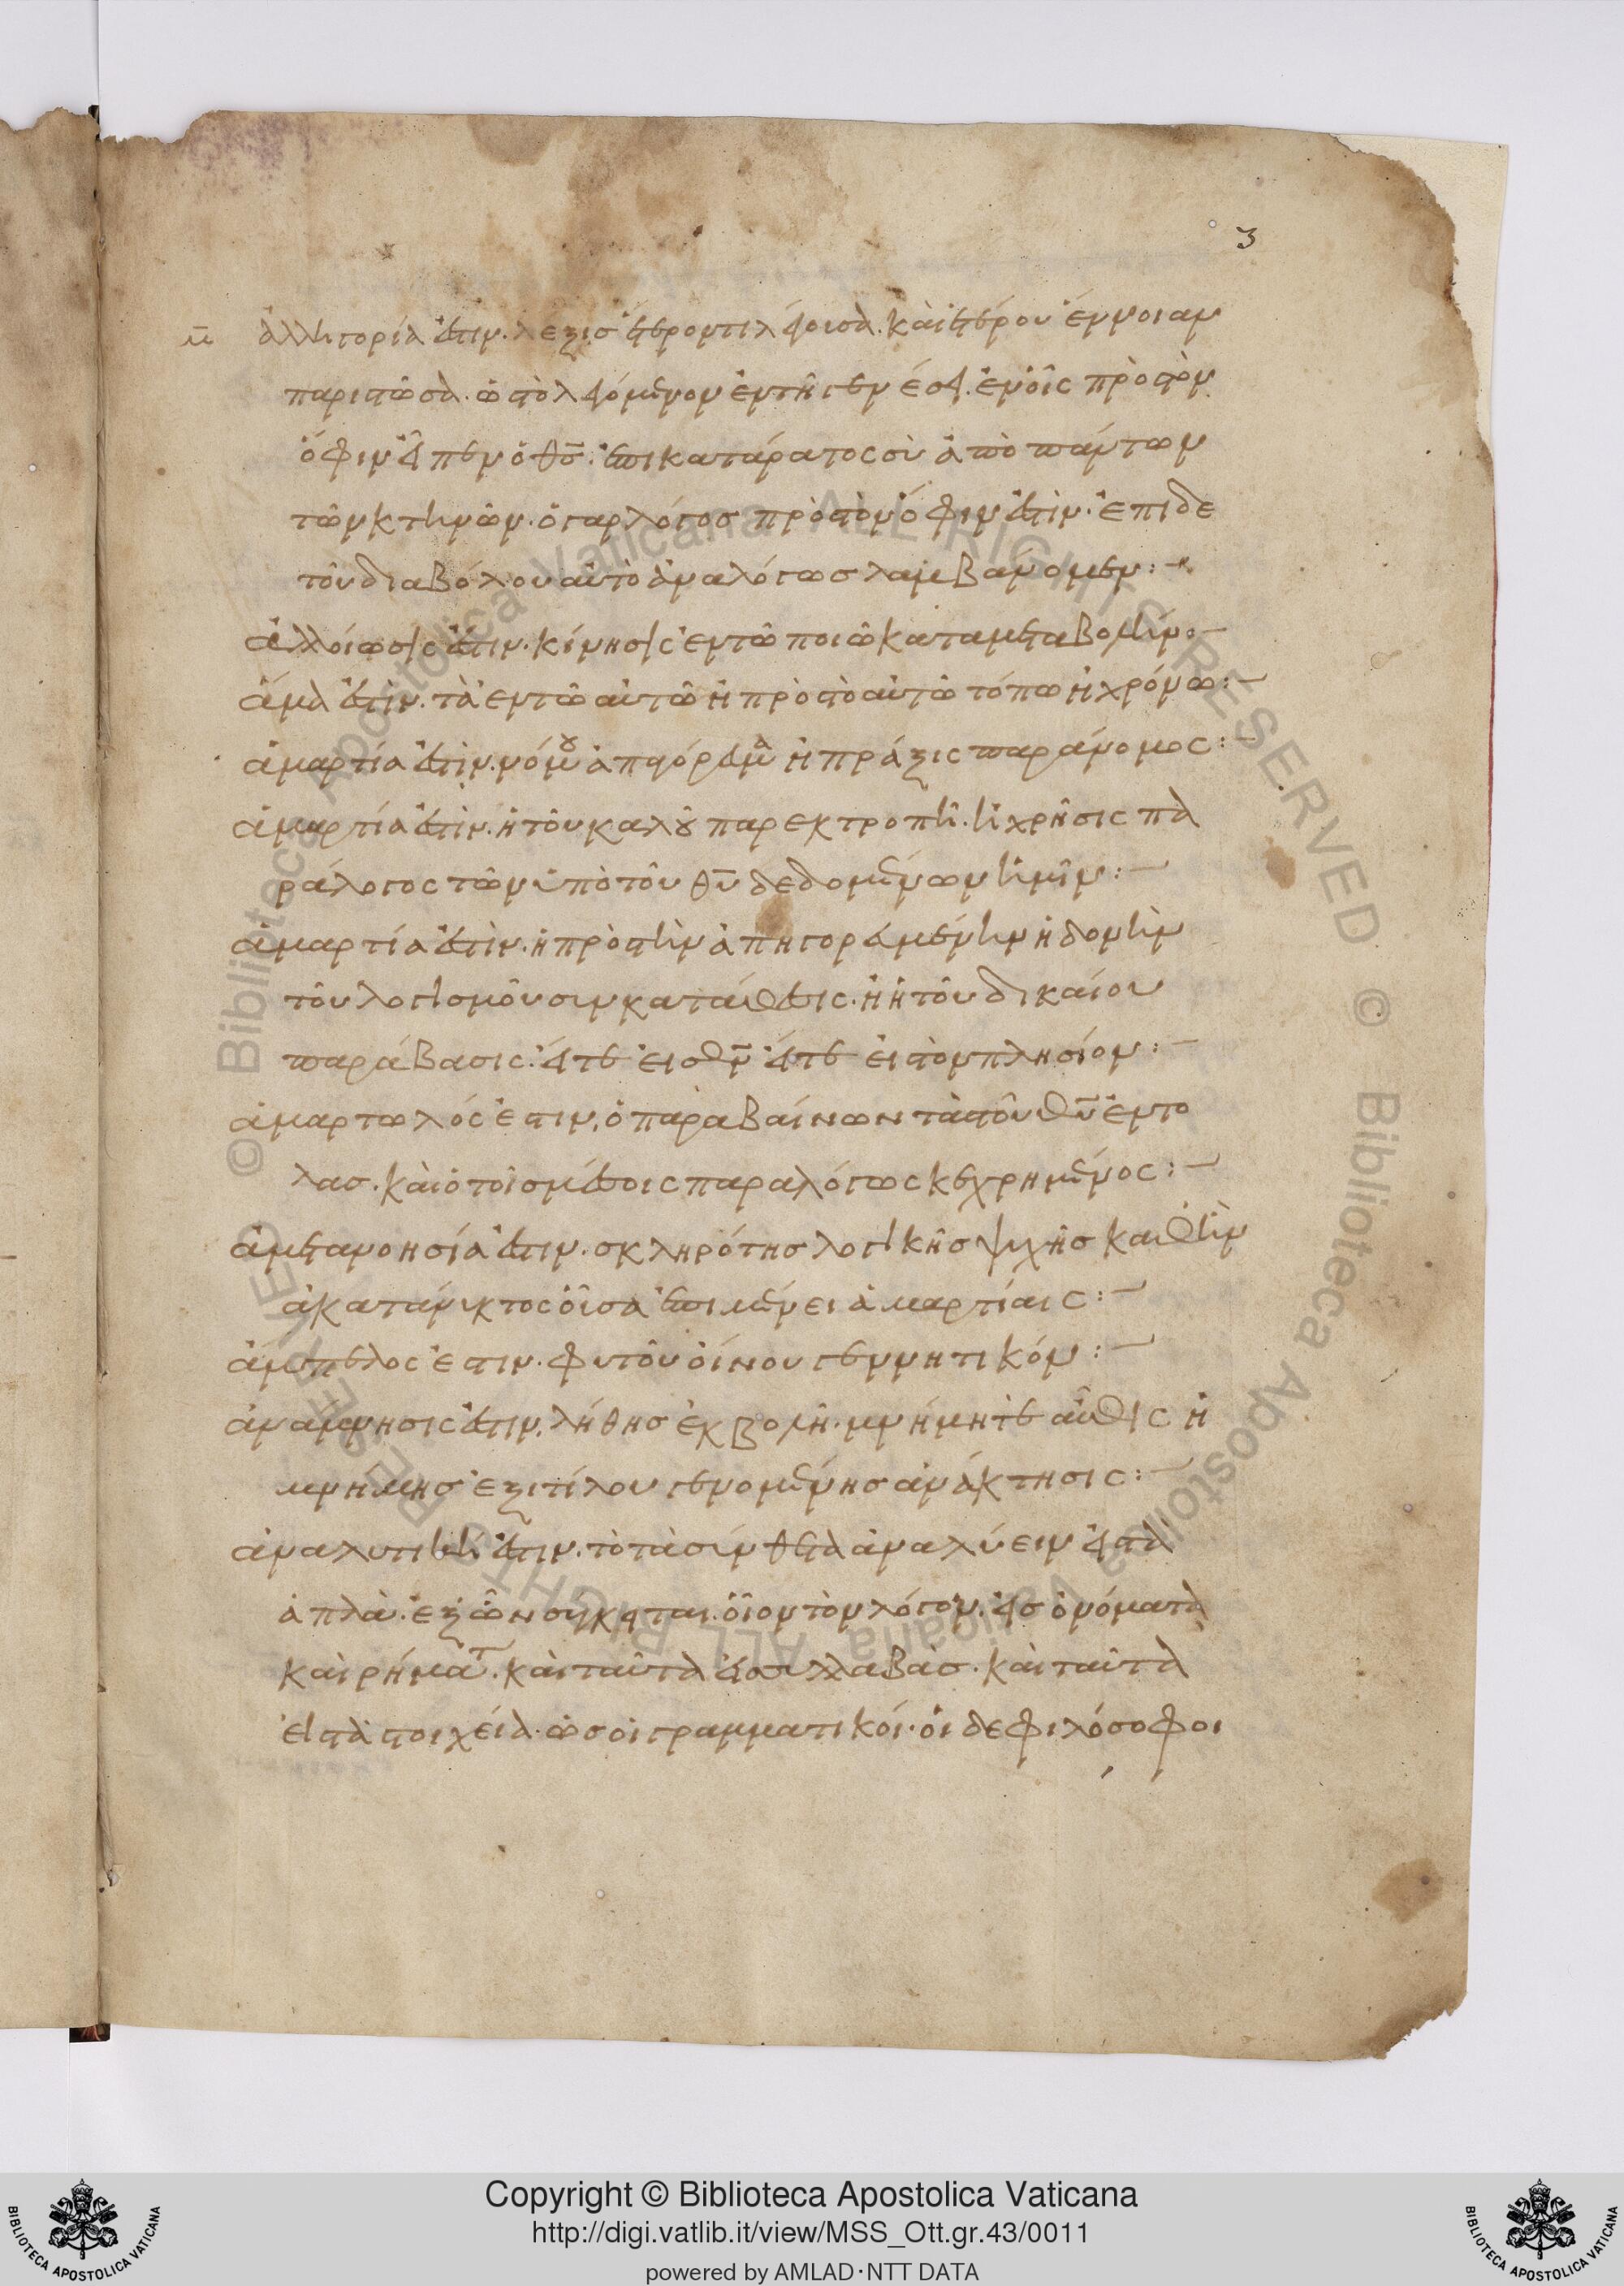 3
ἀλληγορία ἐστιν· λέξισ ἕτερόν τι λέγουσα· καὶ ἑτέρου ἔννοιαν
παριστῶσα· ὡς τὸ λεγόμενον ἐν τῆ γενέσει· ἐν οἷς πρὸς τὸν
ὄφιν εἶπεν ὁ θσ· ἐπικατάρατος σὺ ἀπὸ πάντων
τῶν κτηνῶν· ὁ γαρ λόγοσ πρὸς τὸν ὄφιν ἐστὶν· ἐπι δε
τοῦ διαβόλου αὐτὸ ἀναλόγωσ λαμβάνομεν:
ἀλλοίωσίς ἐστιν· κίνησίς ἐν τῶ ποιῶ κατα μεταβολήν:
ἅμα ἐστὶν· τὰ ἐν τῶ αὐτῶ ἢ πρὸς τὸ αὐτῶ τόπω ἢ χρόνω:
ἁμαρτία ἐστὶν· νόμου ἀπηγόρευμα ἢ πράξις παράνομος:
ἁμαρτία ἐστὶν· ἡ τοῦ καλοῦ παρεκτροπὴ· ἢ χρῆσις πα
ράλογος τῶν ὑπὸ τοῦ θυ δεδομένων ἡμῖν:
ἁμαρτία ἐστὶν· ἡ πρὸς τὴν ἀπηγορευμένην ἡδονὴν
τοῦ λογισμοῦ συγκατάθεσις· ἢ ἡ τοῦ δικαίου
παράβασις· εἴτε εἰς θν εἴτε εἰς τὸν πλησίον:
ἁμαρτωλός ἐστιν, ὁ παραβαίνων τὰς τοῦ θυ ἐντο
λασ· καὶ ὁ τοῖσ μέσοις παραλόγως κεχρημένος:
ἀμετανοησία ἐστιν· σκληρότησ λογικῆσ ψυχῆσ καθ ἣν
ἀκατάνυκτος οὖσα ἐπιμένει ἁμαρτίαις:
ἄμπελος ἐστιν· φυτὸν οἴνου γεννητικόν:
ἀνάμνησις ἐστιν, λήθησ ἐκβολὴ· μνήμη τε αὖθις ἢ
μνήμησ ἐξιτίλου γενομένησ ἀνάκτησις:
ἀναλυτικὴ ἐστιν· τὸ τὰ σύνθετα ἀναλύειν εἰς τὰ
ἁπλὰ· ἐξ ὧν σύγκειται· οἷον τὸν λόγον, εἰσ ὀνόματα
καὶ ρήματ· καὶ ταῦτα εἰσ συλλαβὰσ· καὶ ταῦτα
εἰς τὰ στοιχεία· ὡσ οἱ γραμματικοί· οἱ δε φιλόσοφοι
Copyright © Biblioteca Apostolica Vaticana
http://digi.vatlib.it/view/MSS_Ott.gr.43/0011
powered by AMLAD·NTT DATA
BIBLIOTECA APOSTOLICA VATICANA
BIBLIOTECA APOSTOLICA VATICANA
© Biblioteca Apostolica Vaticana ALL RIGHTS RESERVED
© Biblioteca Apostolica Vaticana ALL RIGHTS RESERVED